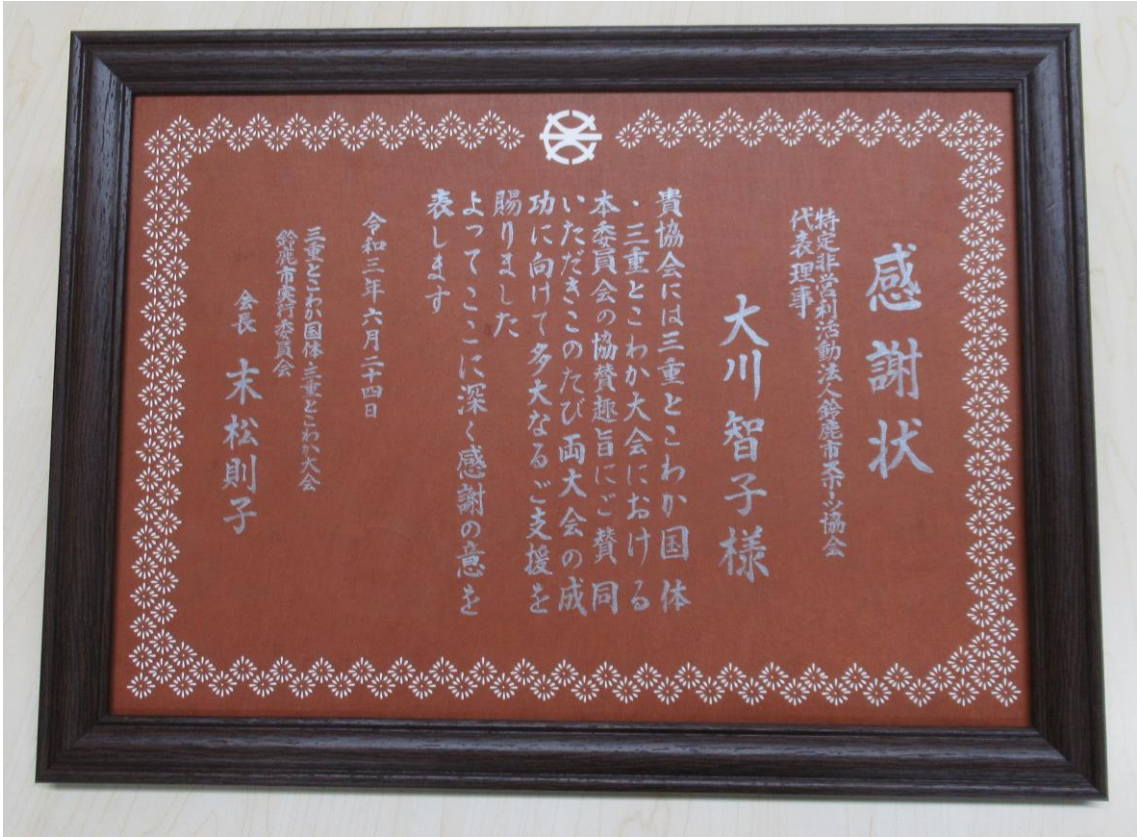 感謝状
特定非営利活動法人鈴鹿市スポーツ協会
代表理事
大川智子様
貴協会には三重とこわか国体
・三重とこわか大会における
本委員会の協賛趣旨にご賛同
いただきこのたび両大会の成
功に向けて多大なるご支援を
賜りました
よってここに深く感謝の意を
表します
令和三年六月二十四日
三重とこわか国体・三重とこわか大会
鈴鹿市実行委員会
会長 末松則子